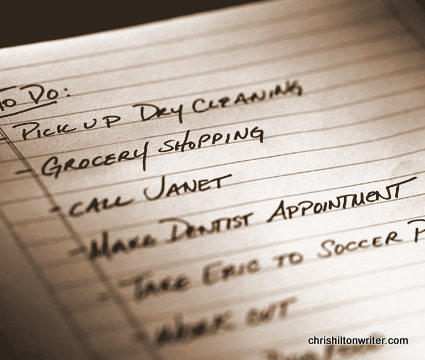 To Do:
Pick up Dry Cleaning
- Grocery Shopping
- Call Janet
- Make Dentist Appointment
- Take Eric to Soccer P
- Work out
chrishiltonwriter.com